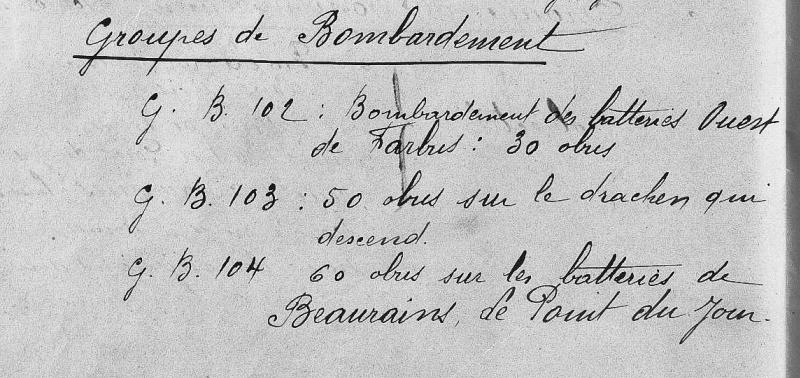 Groupes de Bombardement
G. B. 102 : Bombardement des batteries Ouest
de Farbus : 30 obus
G. B. 103 : 50 obus sur le drachen qui
descend.
G. B. 104 60 obus sur les batteries de
Beaurains, de Point du Jour.